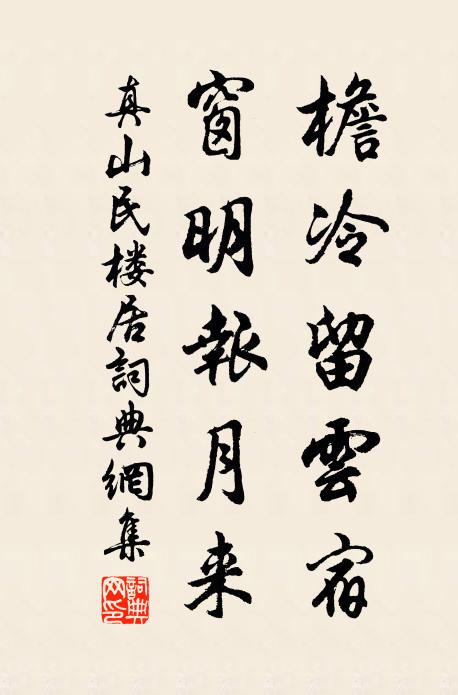 檐冷留雲宿
窗明報月来
真山民楼居詞典網集
詞典网印